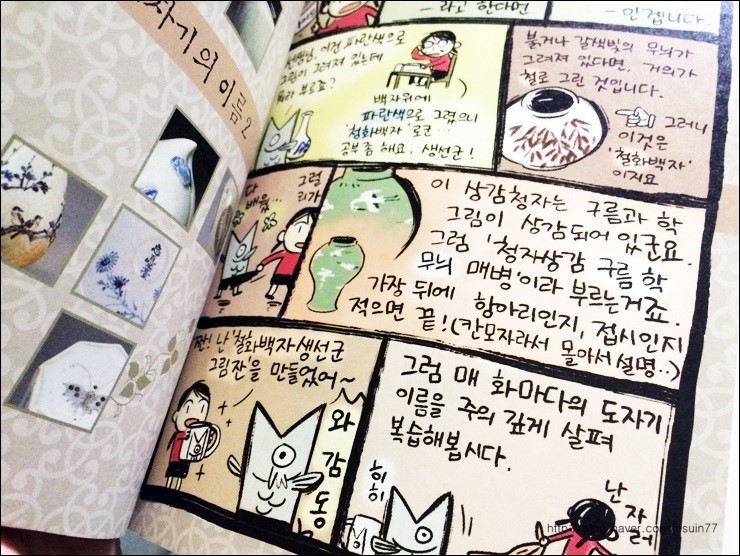 자기의 이름2
라고 한다면
인겝니다.
이건 파란색으로
그림이 그려져 있는데
부르죠?
백자위에
파란색으로 그렸으니
'청화백자'로군…
공부 좀 해요, 생선군!
붉거나 갈색빛의 무늬가
그려져 있다면, 거의가
철로 그린 것입니다.
그러니
이것은
'철화백자'
이지요
다
배움…
그럼
리가
이 상감청자는 구름과 학
그림이 상감되어 있군요.
그럼 '청자상감 구름 학
무늬 매병'이라 부르는거죠.
가장 뒤에 항아리인지, 접시인지
적으면 끝! (칸모자라서 몰아서 설명..)
짠! 난 '철화백자생선군
그림잔'을 만들었어~
와
감
동
그럼 매 화마다의 도자기
이름을 주의 깊게 살펴
복습해봅시다.
히히
난
자러